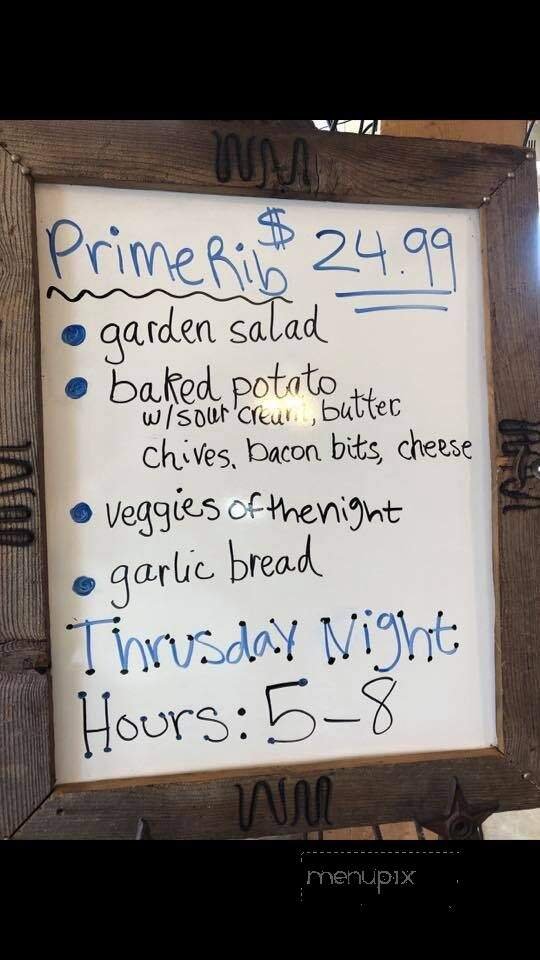 Prime Rib $ 24.99
garden salad
baked potato
w/sour cream, butter
chives. bacon bits, cheese
veggies of the night
garlic bread
Thrusday Night
Hours: 5-8
menupix